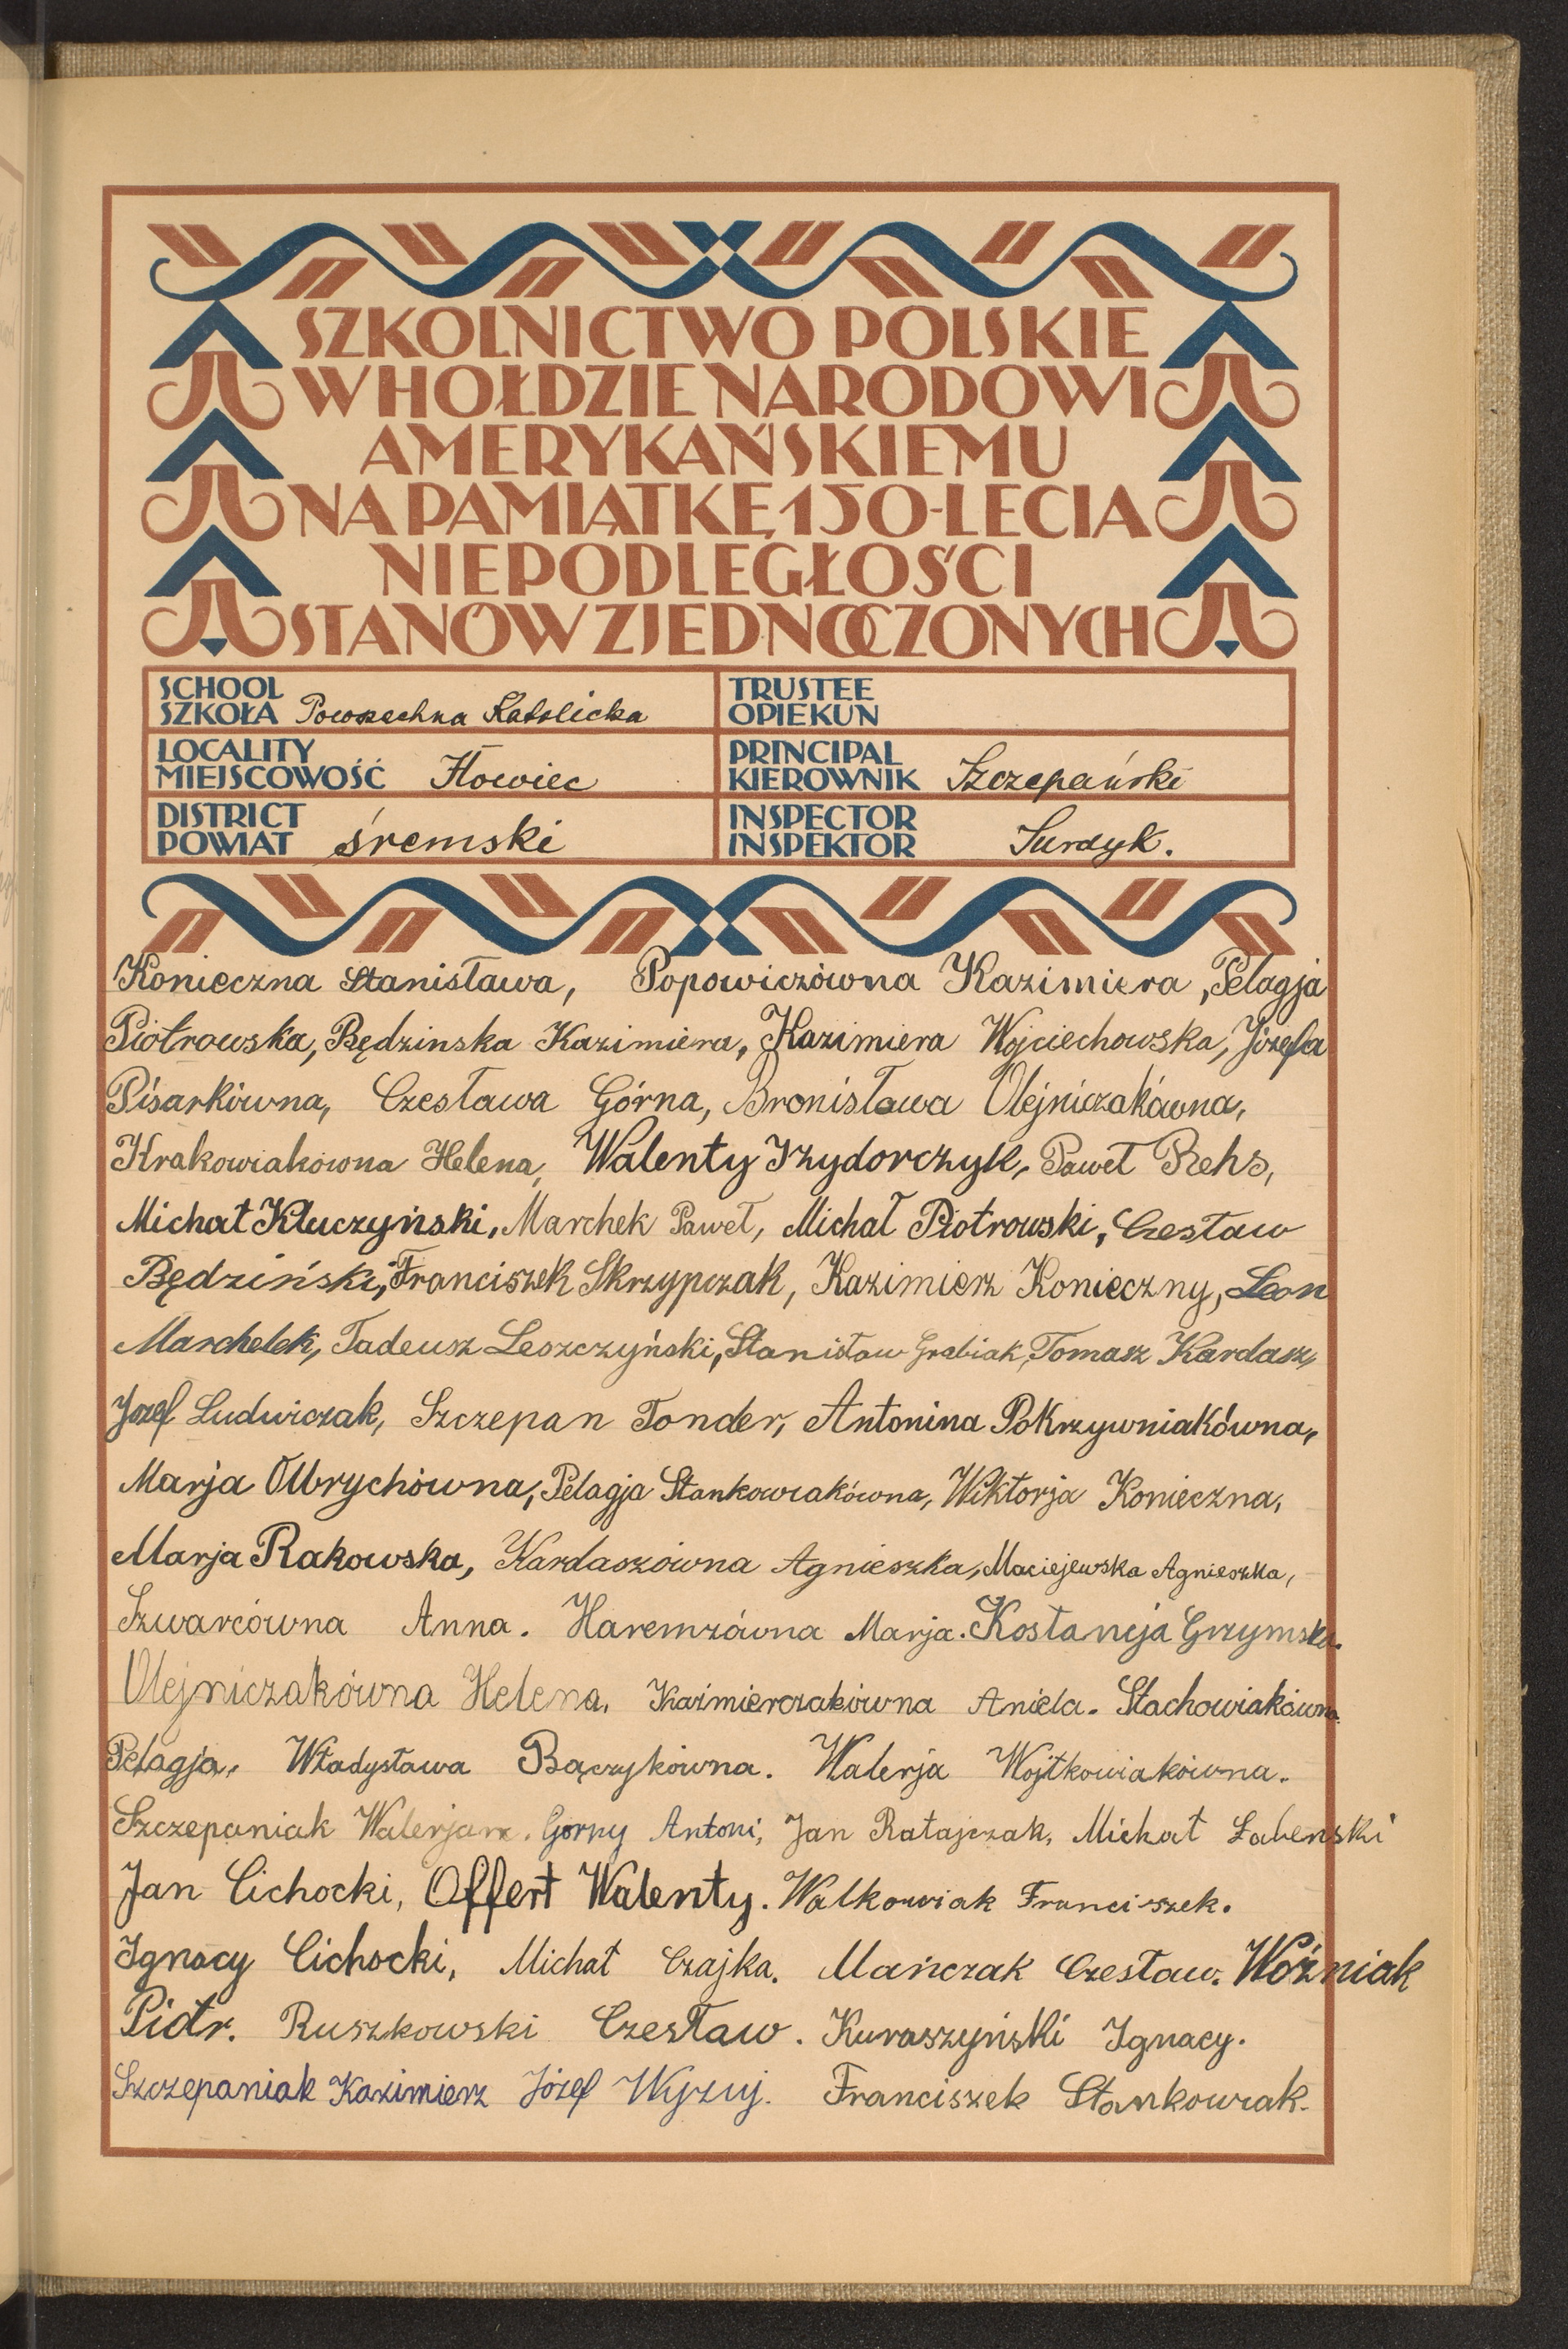 SZKOLNICTWO POLSKIE
W HOŁDZIE NARODOWI
AMERYKAŃSKIEMU
NA PAMIĄTKĘ 150-LECIA
NIEPODLEGŁOŚCI
STANÓW ZJEDNOCZONYCH
SCHOOL
SZKOŁA Powszechna Katolicka
TRUSTEE
OPIEKUN
LOCALITY
MIEJSCOWOŚĆ Iłowiec
PRINCIPAL
KIEROWNIK Szczepański
DISTRICT
POWIAT śremski
INSPECTOR
INSPEKTOR Surdyk.
Konieczna Stanisława, Popowiczówna Kazimiera, Pelagja
Piotrowska, Będzinska Kazimiera, Kazimiera Wojciechowska, Józefa
Pisarkówna, Czesława Górna, Bronisława Olejniczakówna,
Krakowiakówna Helena, Walenty Izydorczyk, Paweł Rehs,
Michał Kluczyński, Marchek Paweł, Michał Piotrowski, Czesław
Będziński, Franciszek Skrzypczak, Kazimierz Konieczny, Leon
Marchelek, Tadeusz Leszczyński, Stanisław Grabiak, Tomasz Kardasz,
Józef Ludwiczak, Szczepan Tonder, Antonina Pokrzywniakówna,
Marja Olbrychówna, Pelagja Stankowiakówna, Wiktorja Konieczna,
Marja Rakowska, Kardaszówna Agnieszka, Maciejewska Agnieszka,
Szwarcówna Anna. Haremzówna Marja. Kostancja Grzymska.
Olejniczakówna Helena. Kaźmierczakówna Aniela. Stachowiakówna
Pelagja. Władysława Bączykówna. Walerja Wojtkowiakówna.
Szczepaniak Walerjan. Gorny Antoni, Jan Ratajczak, Michał Łabenski
Jan Cichocki, Offert Walenty. Walkowiak Franciszek.
Ignacy Cichocki, Michał Czajka. Mańczak Czesław. Woźniak
Piotr. Ruszkowski Czesław. Kuraszyński Ignacy.
Szczepaniak Kazimierz Józef Wyzuj. Franciszek Stankowiak.